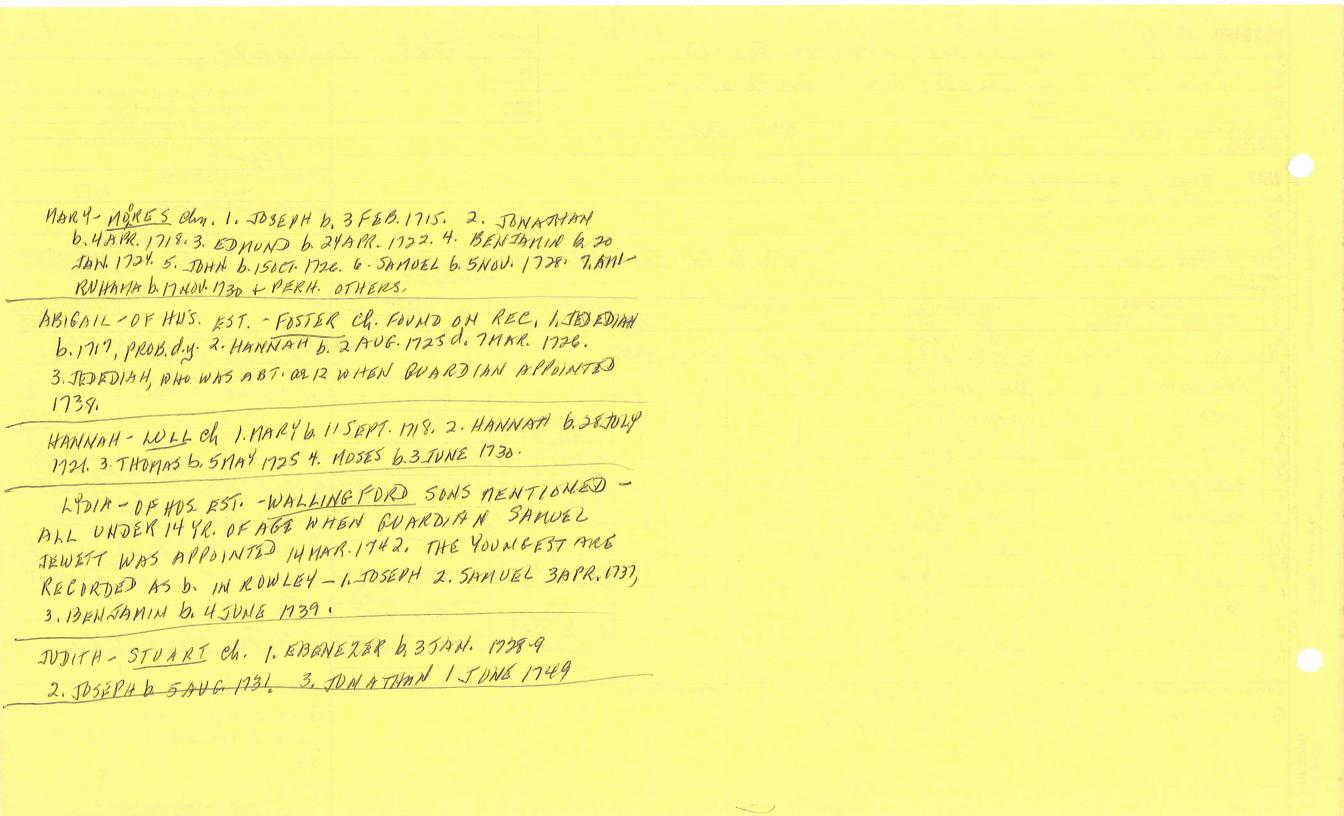 MARY - MORES Chn. 1. JOSEPH b. 3 FEB. 1715. 2. JONATHAN
b. 4 APR. 1718. 3. EDMUND b. 24 APR. 1722. 4. BENJAMIN b. 20
JAN. 1724. 5. JOHN b. 15 OCT. 1726. 6. SAMUEL b. 5 NOV. 1728. 7. AMI-
RUHAMA b. 17 NOV. 1730 + PERH. OTHERS.
ABIGAIL - OF HUS. EST. - FOSTER Ch. FOUND ON REC. 1. JEDEDIAH
b. 1717, PROB. d.y. 2. HANNAH b. 2 AUG. 1725 d. 7 MAR. 1726.
3. JEDEDIAH, WHO WAS ABT. ae 12 WHEN GUARDIAN APPOINTED
1738.
HANNAH - LULL Ch 1. MARY b. 11 SEPT. 1718. 2. HANNAH b. 28 JULY
1721. 3. THOMAS b. 5 MAY 1725 4. MOSES b. 3 JUNE 1730.
LYDIA - OF HUS EST. - WALLINGFORD SONS MENTIONED -
ALL UNDER 14 YR. OF AGE WHEN GUARDIAN SAMUEL
JEWETT WAS APPOINTED 14 MAR. 1742. THE YOUNGEST ARE
RECORDED AS b. IN ROWLEY - 1. JOSEPH 2. SAMUEL 3 APR. 1737,
3. BENJAMIN b. 4 JUNE 1739.
JUDITH - STUART Ch. 1. EBENEZER b. 3 JAN. 1728-9
2. JOSEPH b 5 AUG. 1731. 3. JONATHAN 1 JUNE 1749